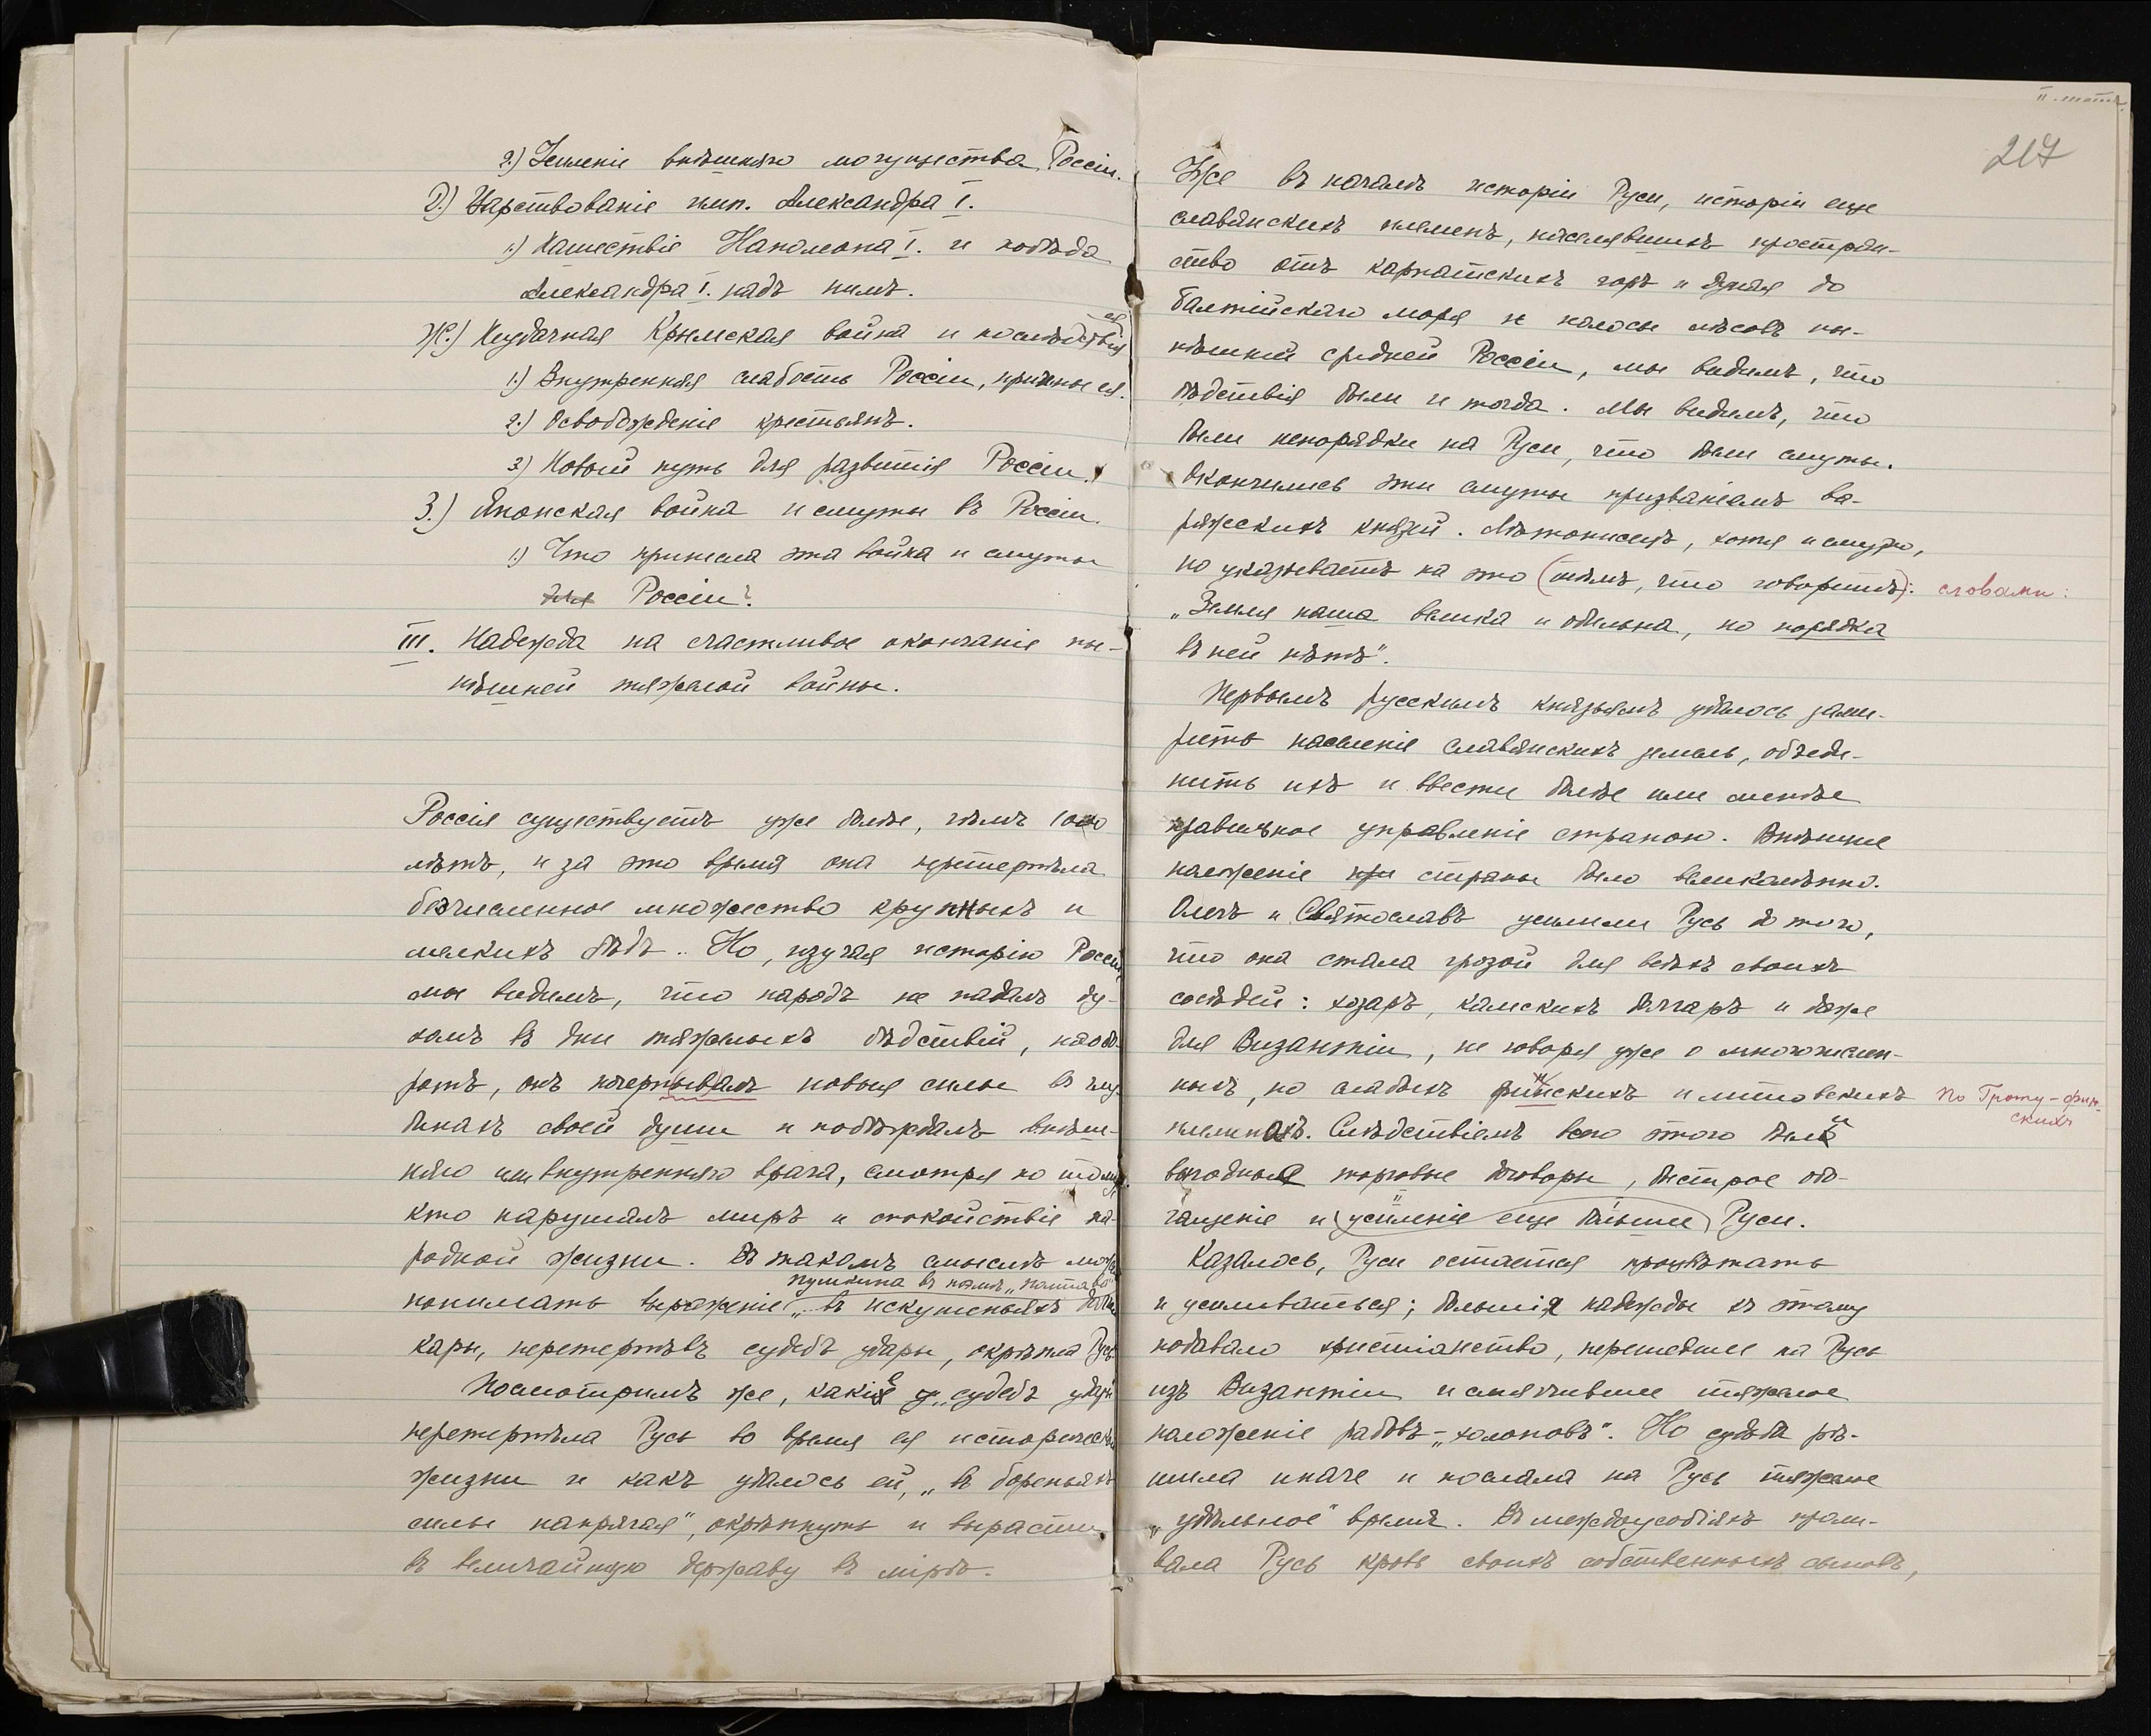 2.) Усиленіе внѣшняго могущества Россіи.
Д.) Царствованіе имп. Александра I.
1.) Нашествіе Наполеона I. и побѣда
Александра I. надъ нимъ.
Ж.) Неудачная Крымская война и послѣдствія ея
1.) Внутренняя слабость Россіи, причины ея.
2.) Освобожденіе крестьянъ.
3.) Новый путь для развитія Россіи.
З.) Японская война и смуты въ Россіи.
1.) Что принесла эта война и смуты
для Россіи?
III. Надежда на счастливое окончаніе ны-
нѣшней тяжелой войны.
Россія существуетъ уже болѣе, чѣмъ 1000
лѣтъ, и за это время она претерпѣла
безчисленное множество крупныхъ и
мелкихъ бѣдъ. Но, изучая исторію Россіи,
мы видимъ, что народъ не падалъ ду-
хомъ въ дни тяжелыхъ бѣдствій, наобо-
ротъ, онъ почерпывалъ новыя силы въ глу-
бинахъ своей души и побѣждалъ внѣш-
няго или внутренняго врага, смотря по тому,
кто нарушалъ миръ и спокойствіе на-
родной жизни. Въ такомъ смыслѣ можно
Пушкина въ поэмѣ „Полтава"
понимать выраженіе „въ искушеньяхъ долгой
кары, перетерпѣвъ судебъ удары, окрѣпла Русь"
Посмотримъ же, какіе „судебъ удары"
перетерпѣла Русь во время ея исторической
жизни и какъ удалось ей, „въ бореньяхъ
силы напрягая", окрѣпнуть и вырасти
въ величайшую державу въ мірѣ.
II. тетр.
217
Уже въ началѣ исторіи Руси, исторіи еще
славянскихъ племенъ, населявшихъ простран-
ство отъ карпатскихъ горъ и Дуная до
балтійскаго моря и полосы лѣсовъ ны-
нѣшней средней Россіи, мы видимъ, что
бѣдствія были и тогда. Мы видимъ, что
были непорядки на Руси, что были смуты.
Окончились эти смуты призваніемъ ва-
ряжскихъ князей. Лѣтописецъ, хотя и смутно,
но указываетъ на это (тѣмъ, что говоритъ): словами:
„Земля наша велика и обильна, но порядка
въ ней нѣтъ".
Первымъ русскимъ князьямъ удалось зами-
рить населеніе славянскихъ земель, объеди-
нить ихъ и ввести болѣе или менѣе
правильное управленіе страною. Внѣшнее
положеніе при страны было великолѣпно.
Олегъ и Святославъ усилили Русь до того,
что она стала грозой для всѣхъ своихъ
сосѣдей: хозаръ, камскихъ болгаръ и даже
для Византіи, не говоря уже о многочислен-
ныхъ, но слабыхъ финскихъ и литовскихъ По Гроту - фин-
скихъ
племенахъ. Слѣдствіемъ всего этого были
выгодные торговые договоры, быстрое обо-
гащеніе и усиленіе еще больше Руси.
Казалось, Руси остается процвѣтать
и усиливаться; большія надежды къ этому
подавало христіанство, перешедшее на Русь
изъ Византіи и смягчившее тяжелое
положеніе рабовъ-„холоповъ". Но судьба рѣ-
шила иначе и послала на Русь тяжелое
„удѣльное" время. Въ междоусобіяхъ проли-
вала Русь кровь своихъ собственныхъ сыновъ,